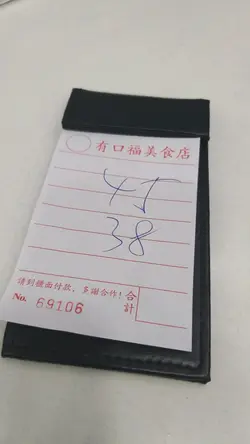 有口福美食店
45
38
請到櫃面付款、多謝合作!
合計
No. 69106